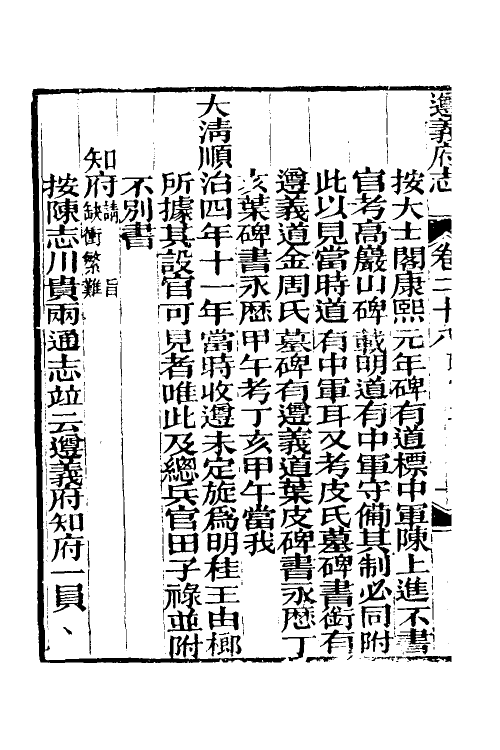 遵義府志　卷二十八
按大士閣康熙元年碑有道標中軍陳上進不書
官考高巖山碑載明道有中軍守備其制必同附
此以見當時道有中軍耳又考皮氏墓碑書銜有
遵義道金周氏墓碑有遵義道葉皮碑書永歷丁
亥葉碑書永歷甲午考丁亥甲午當我
大淸順治四年十一年當時收遵未定旋爲明桂王由榔
所據其設官可見者唯此及總兵官田子祿並附
不別書
知府請旨缺衝繁難
按陳志川貴兩通志竝云遵義府知府一員、